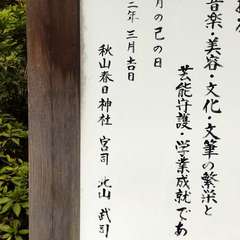 音楽・美容・文化・文筆の繁栄と
芸能守護・学業成就であ
月の己の日
三年 三月吉日
秋山春日神社 宮司 北山 武引